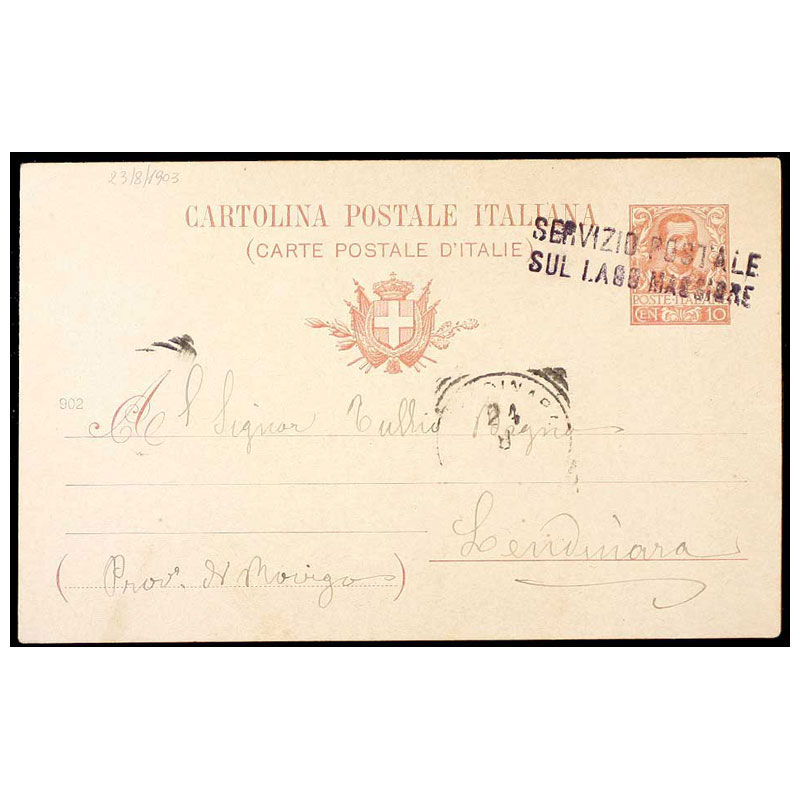 23/8/1903
CARTOLINA POSTALE ITALIANA
(CARTE POSTALE D'ITALIE)
SERVIZIO POSTALE
SUL LAGO MAGGIORE
POSTE ITALIANE
CEN 10
902
Al Signor Tullio
24
8
Lendinara
(Prov. di Rovigo)